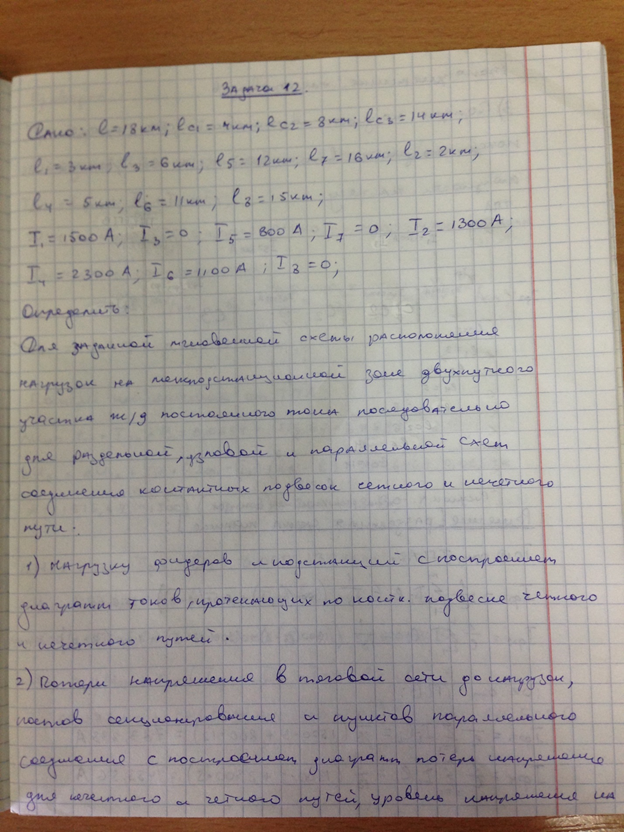 Задача 12.
Дано: l=18км; lc1 = 4км; lc2 = 8км; lc3 = 14км;
l1 = 3км; l3 = 6км; l5 = 12км; l7 = 16км; l2 = 2км;
l4 = 5км, l6 = 11км; l8 = 15км;
I1 = 1500 А; I3 = 0; I5 = 800 А; I7 = 0; I2 = 1300 А;
I4 = 2300 А; I6 = 1100 А; I8 = 0;
Определить:
Для заданной мгновенной схемы расположения
нагрузок на межподстанционной зоне двухпутного
участка ж/д постоянного тока последовательно
для раздельной, узловой и параллельной схем
соединения контактных подвесок четного и нечетного
пути:
1) Нагрузку фидеров и подстанций с построением
диаграмм токов, протекающих по контк. подвеске четного
и нечетного путей.
2) Потери напряжения в тяговой сети до нагрузок,
постов секционирования и пунктов параллельного
соединения с построением диаграмм потерь напряжения
для нечетного и четного путей, уровень напряжения на